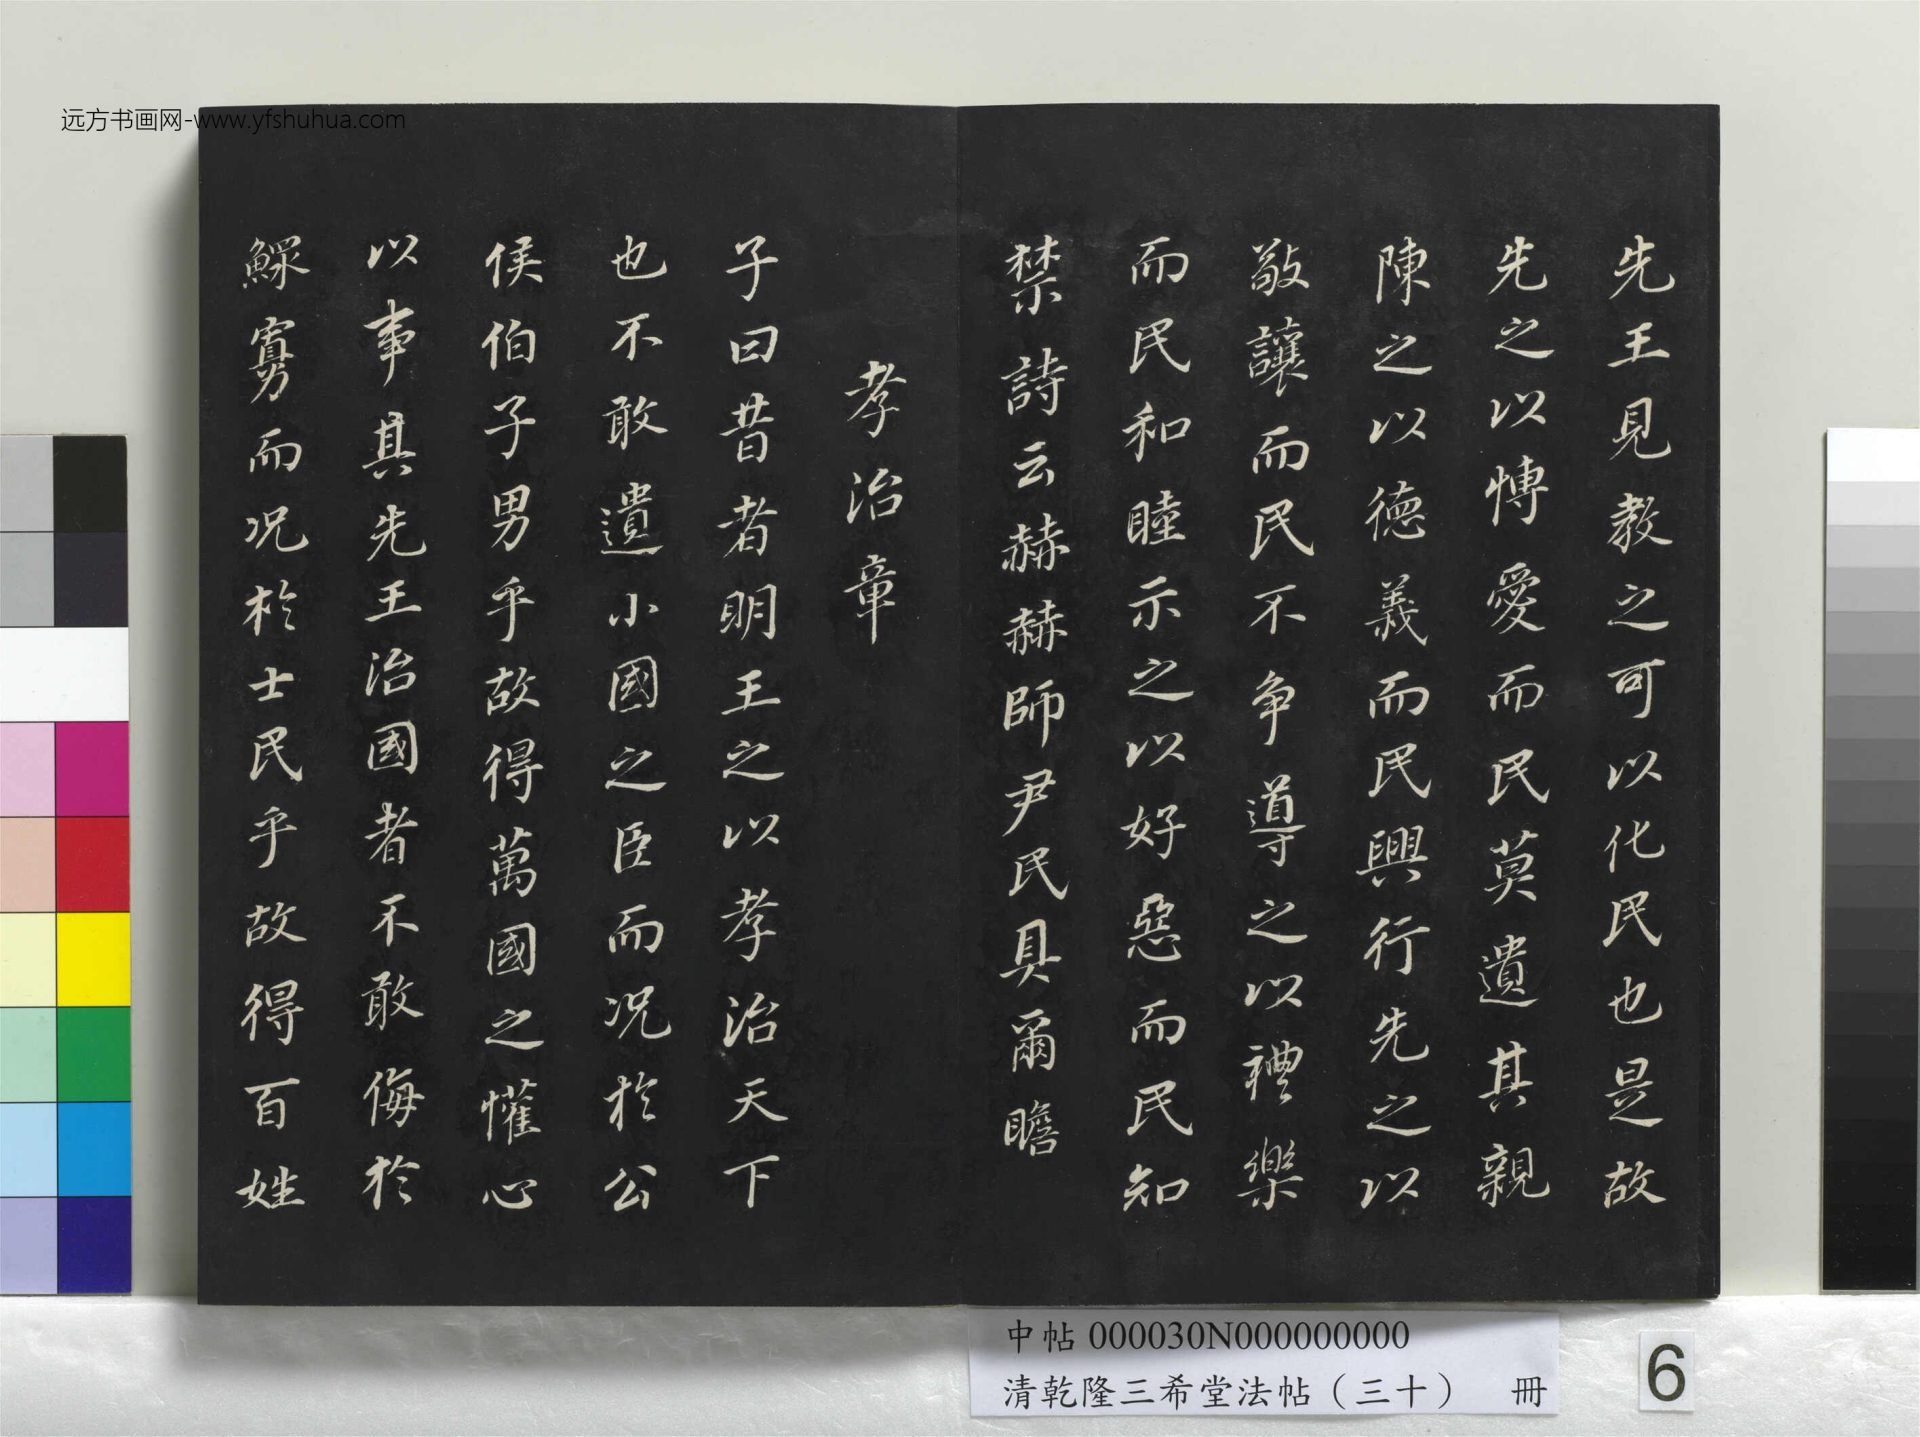 远方书画网-www.yfshuhua.com
先王見教之可以化民也是故
先之以愽愛而民莫遺其親
陳之以德義而民興行先之以
敬讓而民不争導之以禮樂
而民和睦示之以好惡而民知
禁詩云赫赫師尹民具爾瞻
孝治章
子曰昔者明王之以孝治天下
也不敢遺小國之臣而况於公
侯伯子男乎故得萬國之懽心
以事其先王治國者不敢侮於
鰥寡而况於士民乎故得百姓
中帖 000030N000000000
清乾隆三希堂法帖（三十） 冊
6